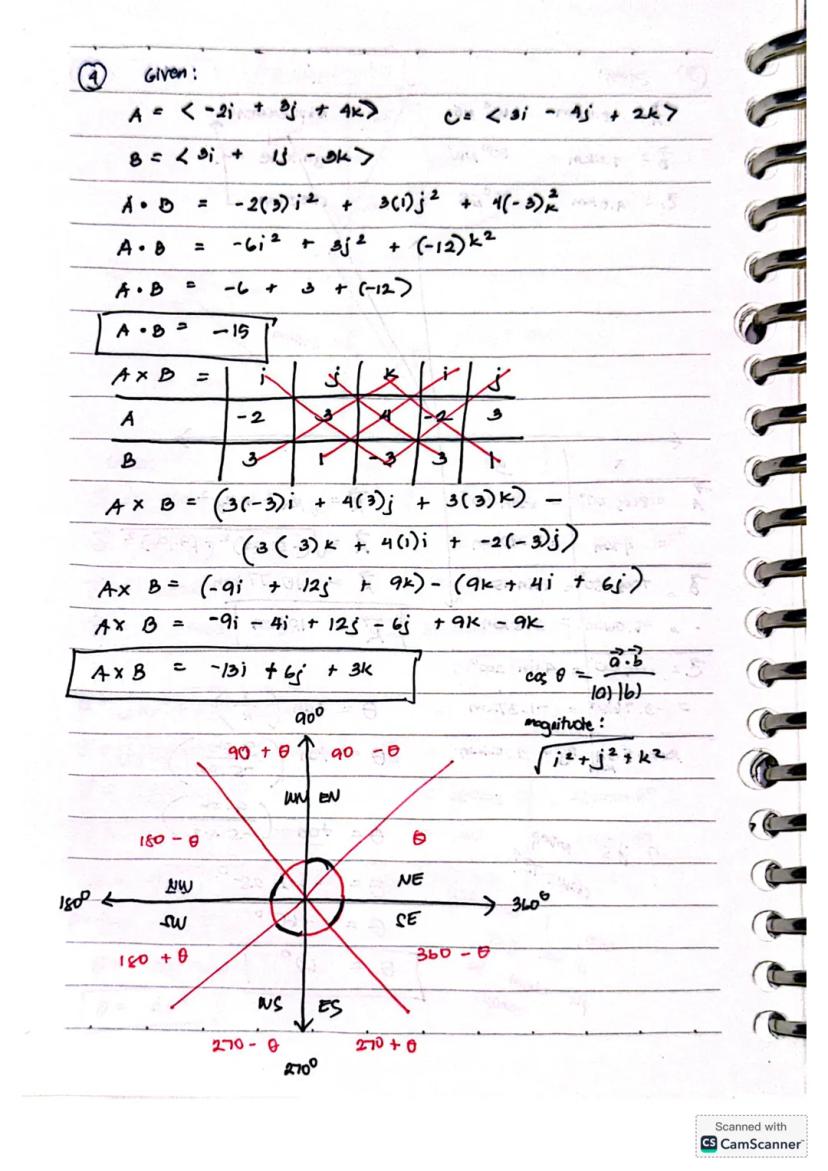 ④ Given:
A = < -2i + 3j + 4k> C = <3i - 4j + 2k>
B = < 3i + 1j - 3k >
A • B = -2(3)i² + 3(1)j² + 4(-3)k²
A • B = -6i² + 3j² + (-12)k²
A • B = -6 + 3 + (-12)
A • B = -15
A x B = i j k i j
A -2 3 4 -2 3
B 3 1 -3 3 1
A x B = (3(-3)i + 4(3)j + 3(3)k) -
(3(3)k + 4(1)i + -2(-3)j)
A x B = (-9i + 12j + 9k) - (9k + 4i + 6j)
A x B = -9i - 4i + 12j - 6j + 9k - 9k
A x B = -13i + 6j + 3k
cos θ = a·b
|a| |b|
magnitude:
√i² + j² + k²
90°
90 + θ 90 - θ
WN EN
180 - θ θ
NW NE
180° 360°
SW SE
180 + θ 360 - θ
WS ES
270 - θ 270 + θ
270°
Scanned with
CS CamScanner